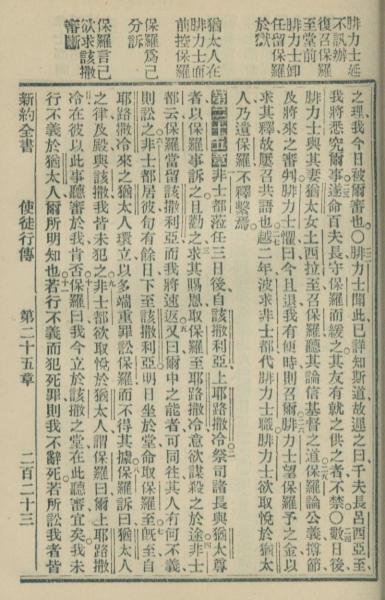 腓力士延
不訊辦
復召保羅
至堂前
腓力士卸
任留保羅
於獄
猶太人在
腓力士面
前控保羅
保羅爲己
分訴
保羅言己
欲求該撒
審斷
之理我今日被爾審也○腓力士聞此已詳知斯道故遲之曰千夫長呂西亞至
我將悉究爾事遂命百夫長守保羅而緩之其友有就之供之者不禁○數日後
腓力士與其妻猶太女土西拉至召保羅聽其論信基督之道保羅論公義撙節
及將來之審判腓力士懼曰今且退我有便時則召爾腓力士望保羅予之金以
求其釋故屢召共語也越二年波求非士都代腓力士職腓力士欲取悅於猶太
人乃遺保羅不釋繫焉
第二十五章 非士都蒞任三日後自該撒利亞上耶路撒冷祭司諸長與猶太尊
者以保羅事訴之且勸之求其賜恩取保羅至耶路撒冷意欲謀殺之於途非士
都云保羅當留該撒利亞而我將速返又曰爾中之能者可同往其人有何不義
則訟之非士都居彼旬有餘日下至該撒利亞明日坐於堂命取保羅至旣至自
耶路撒冷來之猶太人環立以多端重罪訟保羅而不得其據保羅訴曰猶太人
之律及殿與該撒我皆未犯之非士都欲取悅於猶太人謂保羅曰爾上耶路撒
冷在彼以此事聽審於我肯否保羅曰我今立於該撒之堂在此聽審宜矣我未
行不義於猶太人爾所明知也若行不義而犯死罪則我不辭死若所訟我者皆
新約全書 使徒行傳 第二十五章 二百二十三